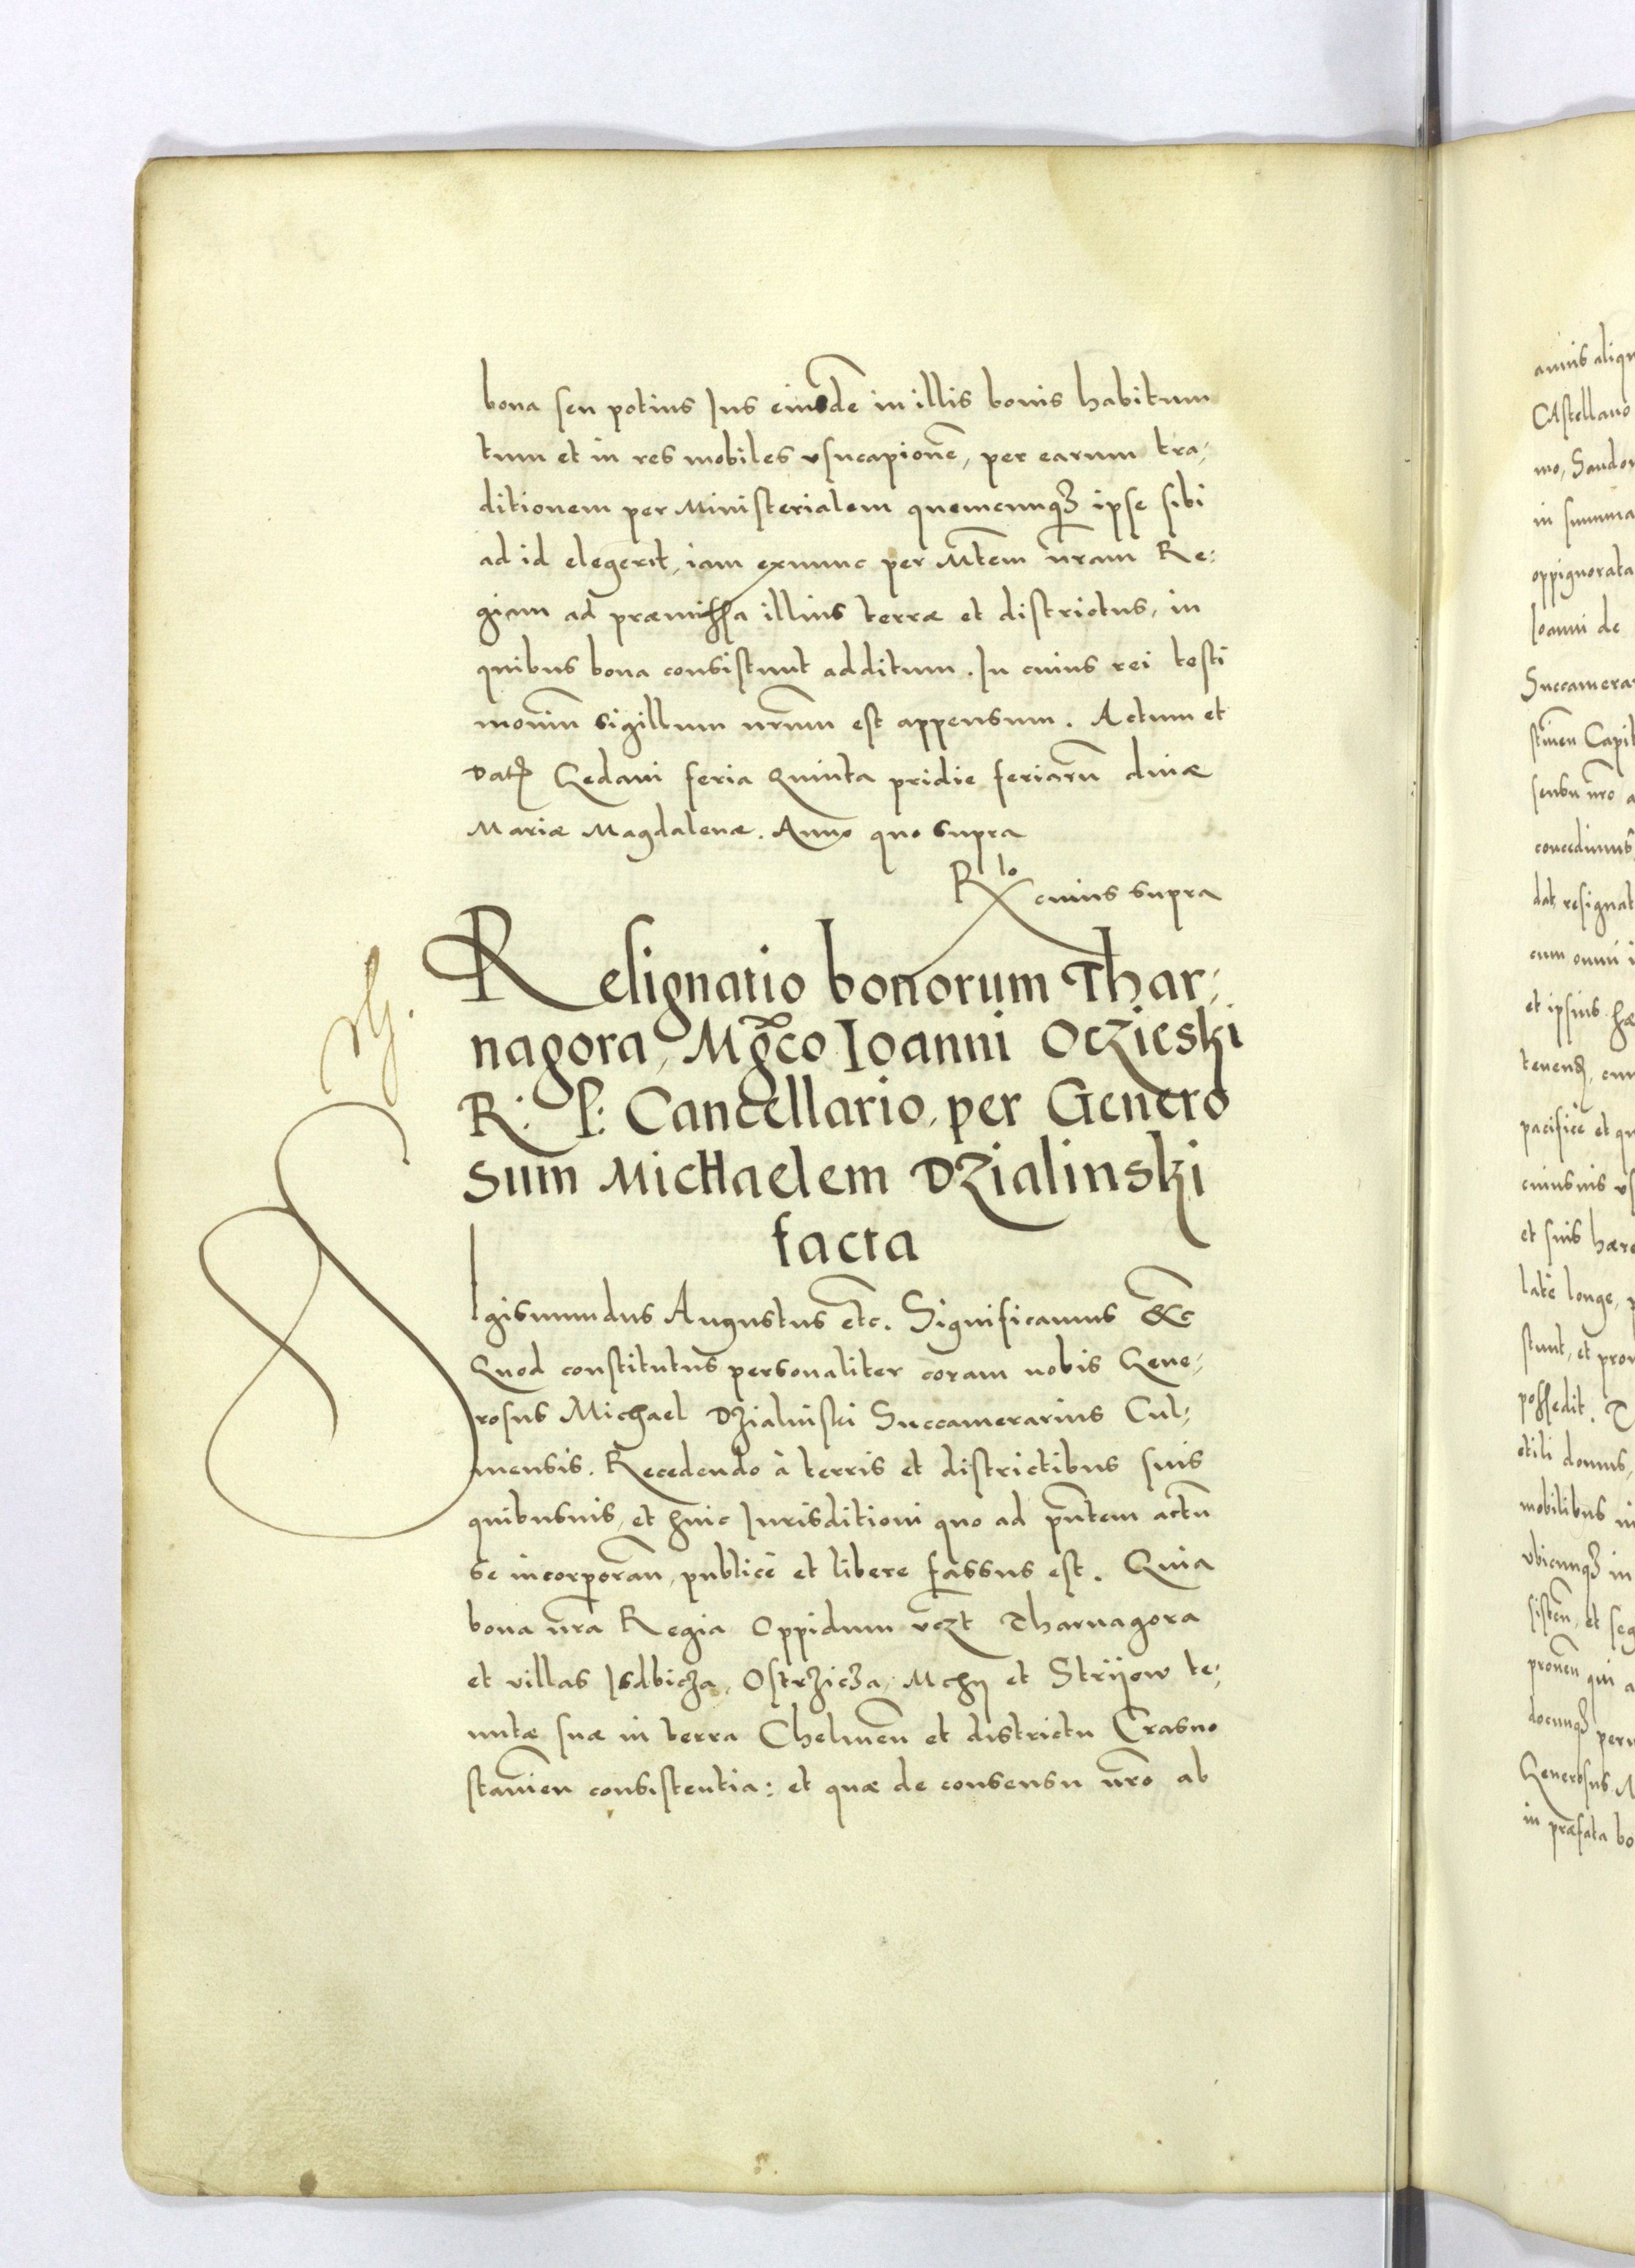 bona seu potius Ius eiusdẽ in illis bonis habitum
tum et in res mobiles vsucapionẽ, per earum tra-
ditionem per Ministerialem quemcunqȝ ipse sibi
ad id elegerit, iam exnunc per Mtem nr̃am Re-
giam ad præmissa illius terræ et districtus, in
quibus bona consistunt additum. In cuius rei testi
moniũ sigillum nr̃um est appensum. Actum et
Dat Gedani feria Quinta pridie feriarũ diuæ
Mariæ Magdalenæ. Anno quo supra
Rlo cuius supra
Resignatio bonorum Thar-
nagora, Mg̃co Ioanni Oczieski
R: P: Cancellario, per Genero
sum Michaelem Dzialinski
facta
SIgismundus Augustus etc̃. Significamus &c̃
Quod constitutus personaliter coram nobis Gene-
rosus Michael Dzialinski Succamerarius Cul-
mensis. Recedendo à terris et districtibus suis
quibusuis, et huic Iurisditioni quo ad pñtem actũ
se incorporan̄, publicè et libere fassus est. Quia
bona nr̃a Regia Oppidum vczt Tharnagora
et villas Isdbicza, Ostrzicza, Mchy et Strijow te-
nutæ suæ in terra Chelmen̄ et districtu Crasno
stauien̄ consistentia: et quæ de consensu nr̃o ab
annis aliqu
Castellano
mo, Sandom
in summa
oppignorata
Ioanni de
Succamerar
Capit
sensu nr̃o a
concedimus
dat, resignat
cum omni i
et ipsius hæ
pacificè et qu
cuiusuis vs
et suis hære
latè longe, p
stunt, et prou
possedit. 
vtili domus,
mobilibus in
vbicunqȝ in
et seq
qui a
Generosus M
in præfata bo